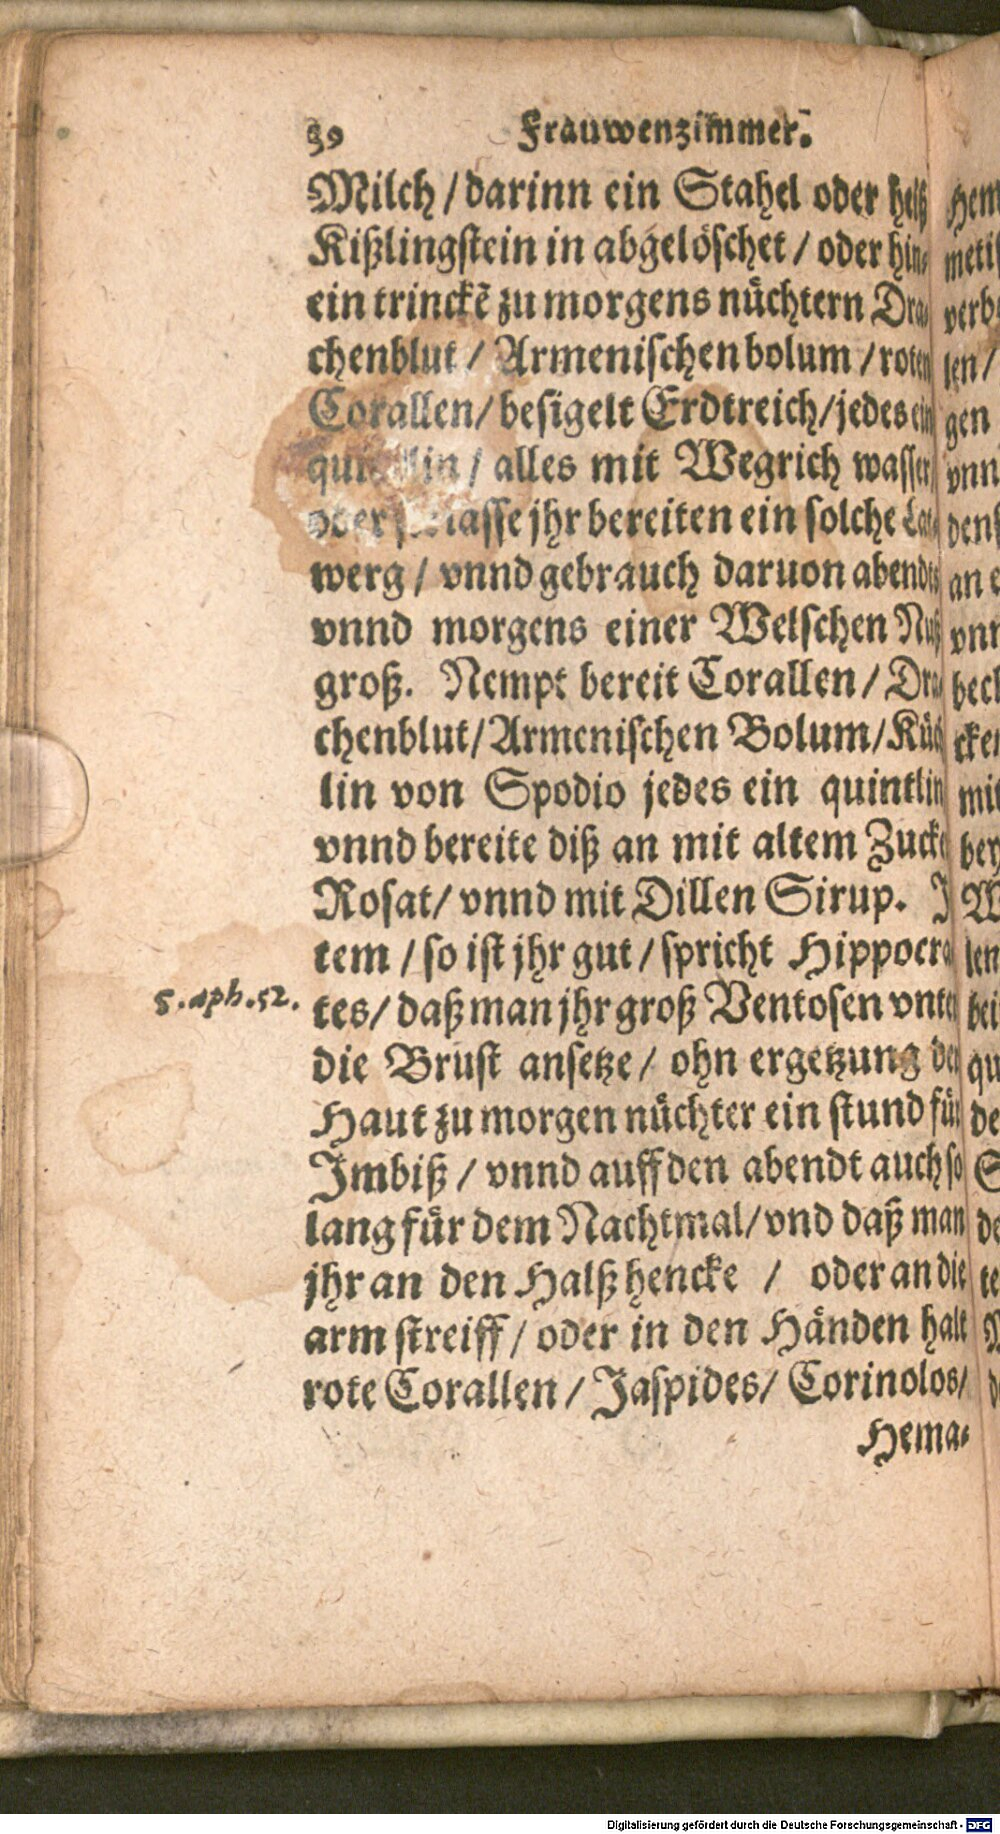 39 Frauwenzimmer.
Milch / darinn ein Stahel oder heiß
Kißlingstein in abgelöschet / oder hin-
ein trinckē zu morgens nüchtern Dra-
chenblut / Armenischen bolum / roten
Corallen / besigelt Erdtreich / jedes ein
quintlin / alles mit Wegrich wasser
oder lasse jhr bereiten ein solche Lat-
werg / vnnd gebrauch daruon abends
vnnd morgens einer Welschen Nuß
groß. Nempt bereit Corallen / Dra-
chenblut / Armenischen Bolum / Küch
lin von Spodio jedes ein quintlin
vnnd bereite diß an mit altem Zucker
Rosat / vnnd mit Dillen Sirup. J
tem / so ist jhr gut / spricht Hippocra
5. aph. 52.
tes / daß man jhr groß Ventosen vnter
die Brust ansetze / ohn ergetzung der
Haut zu morgen nüchter ein stund für
Jmbiß / vnnd auff den abendt auch so
lang für dem Nachtmal / vnd daß man
jhr an den Halß hencke / oder an die
arm streiff / oder in den Händen halt
rote Corallen / Jaspides / Corinolos /
Hema-
Hem
metis
verb
len /
gen
vnn
dens
an
vnn
bech
cken
mit
ber
len
bei
qu
de
S
de
te
Digitalisierung gefördert durch die Deutsche Forschungsgemeinschaft - DFG